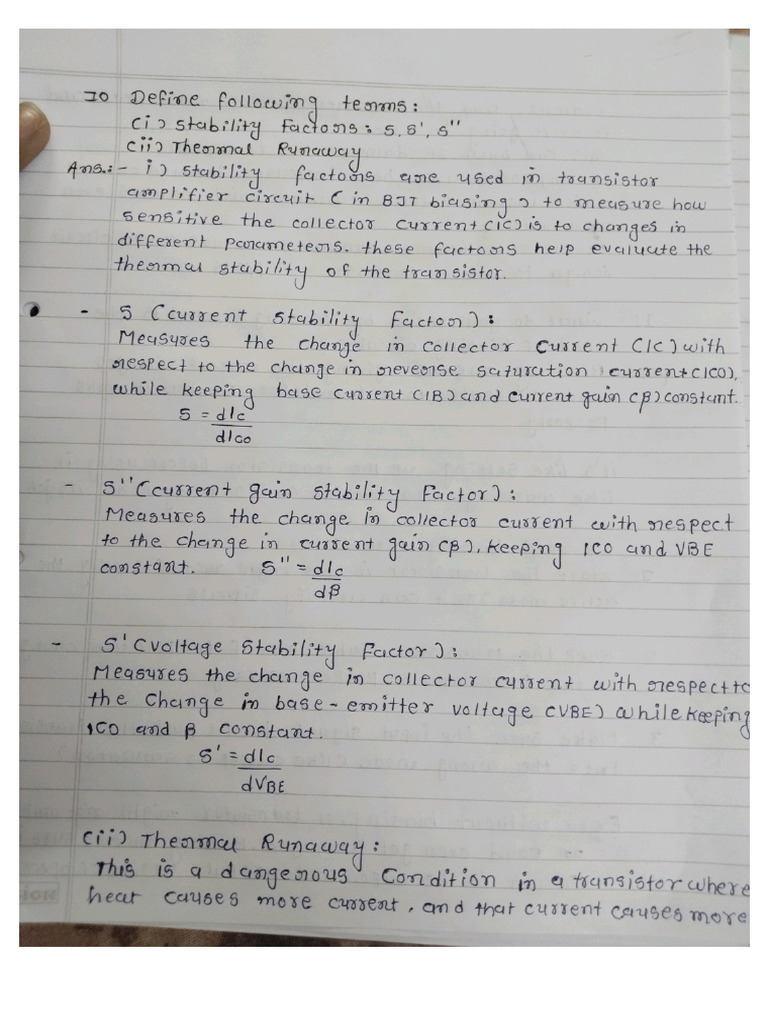 10 Define following terms:
(i) Stability Factors: S, S', S''
(ii) Thermal Runaway
Ans.:- i) Stability factors are used in transistor
amplifier circuit (in BJT biasing) to measure how
sensitive the collector current (IC) is to changes in
different parameters. these factors help evaluate the
thermal stability of the transistor.
- S (current stability Factor):
Measures the change in collector current (IC) with
respect to the change in reverse saturation current (ICO),
while keeping base current (IB) and current gain (β) constant.
S = dIc
dIco
- S'' (current gain stability Factor):
Measures the change in collector current with respect
to the change in current gain (β), keeping ICO and VBE
constant. S'' = dIc
dβ
- S' (voltage stability Factor):
Measures the change in collector current with respect to
the change in base-emitter voltage (VBE) while keeping
ICO and β constant.
S' = dIc
dVBE
(ii) Thermal Runaway:
This is a dangerous condition in a transistor where
heat causes more current, and that current causes more